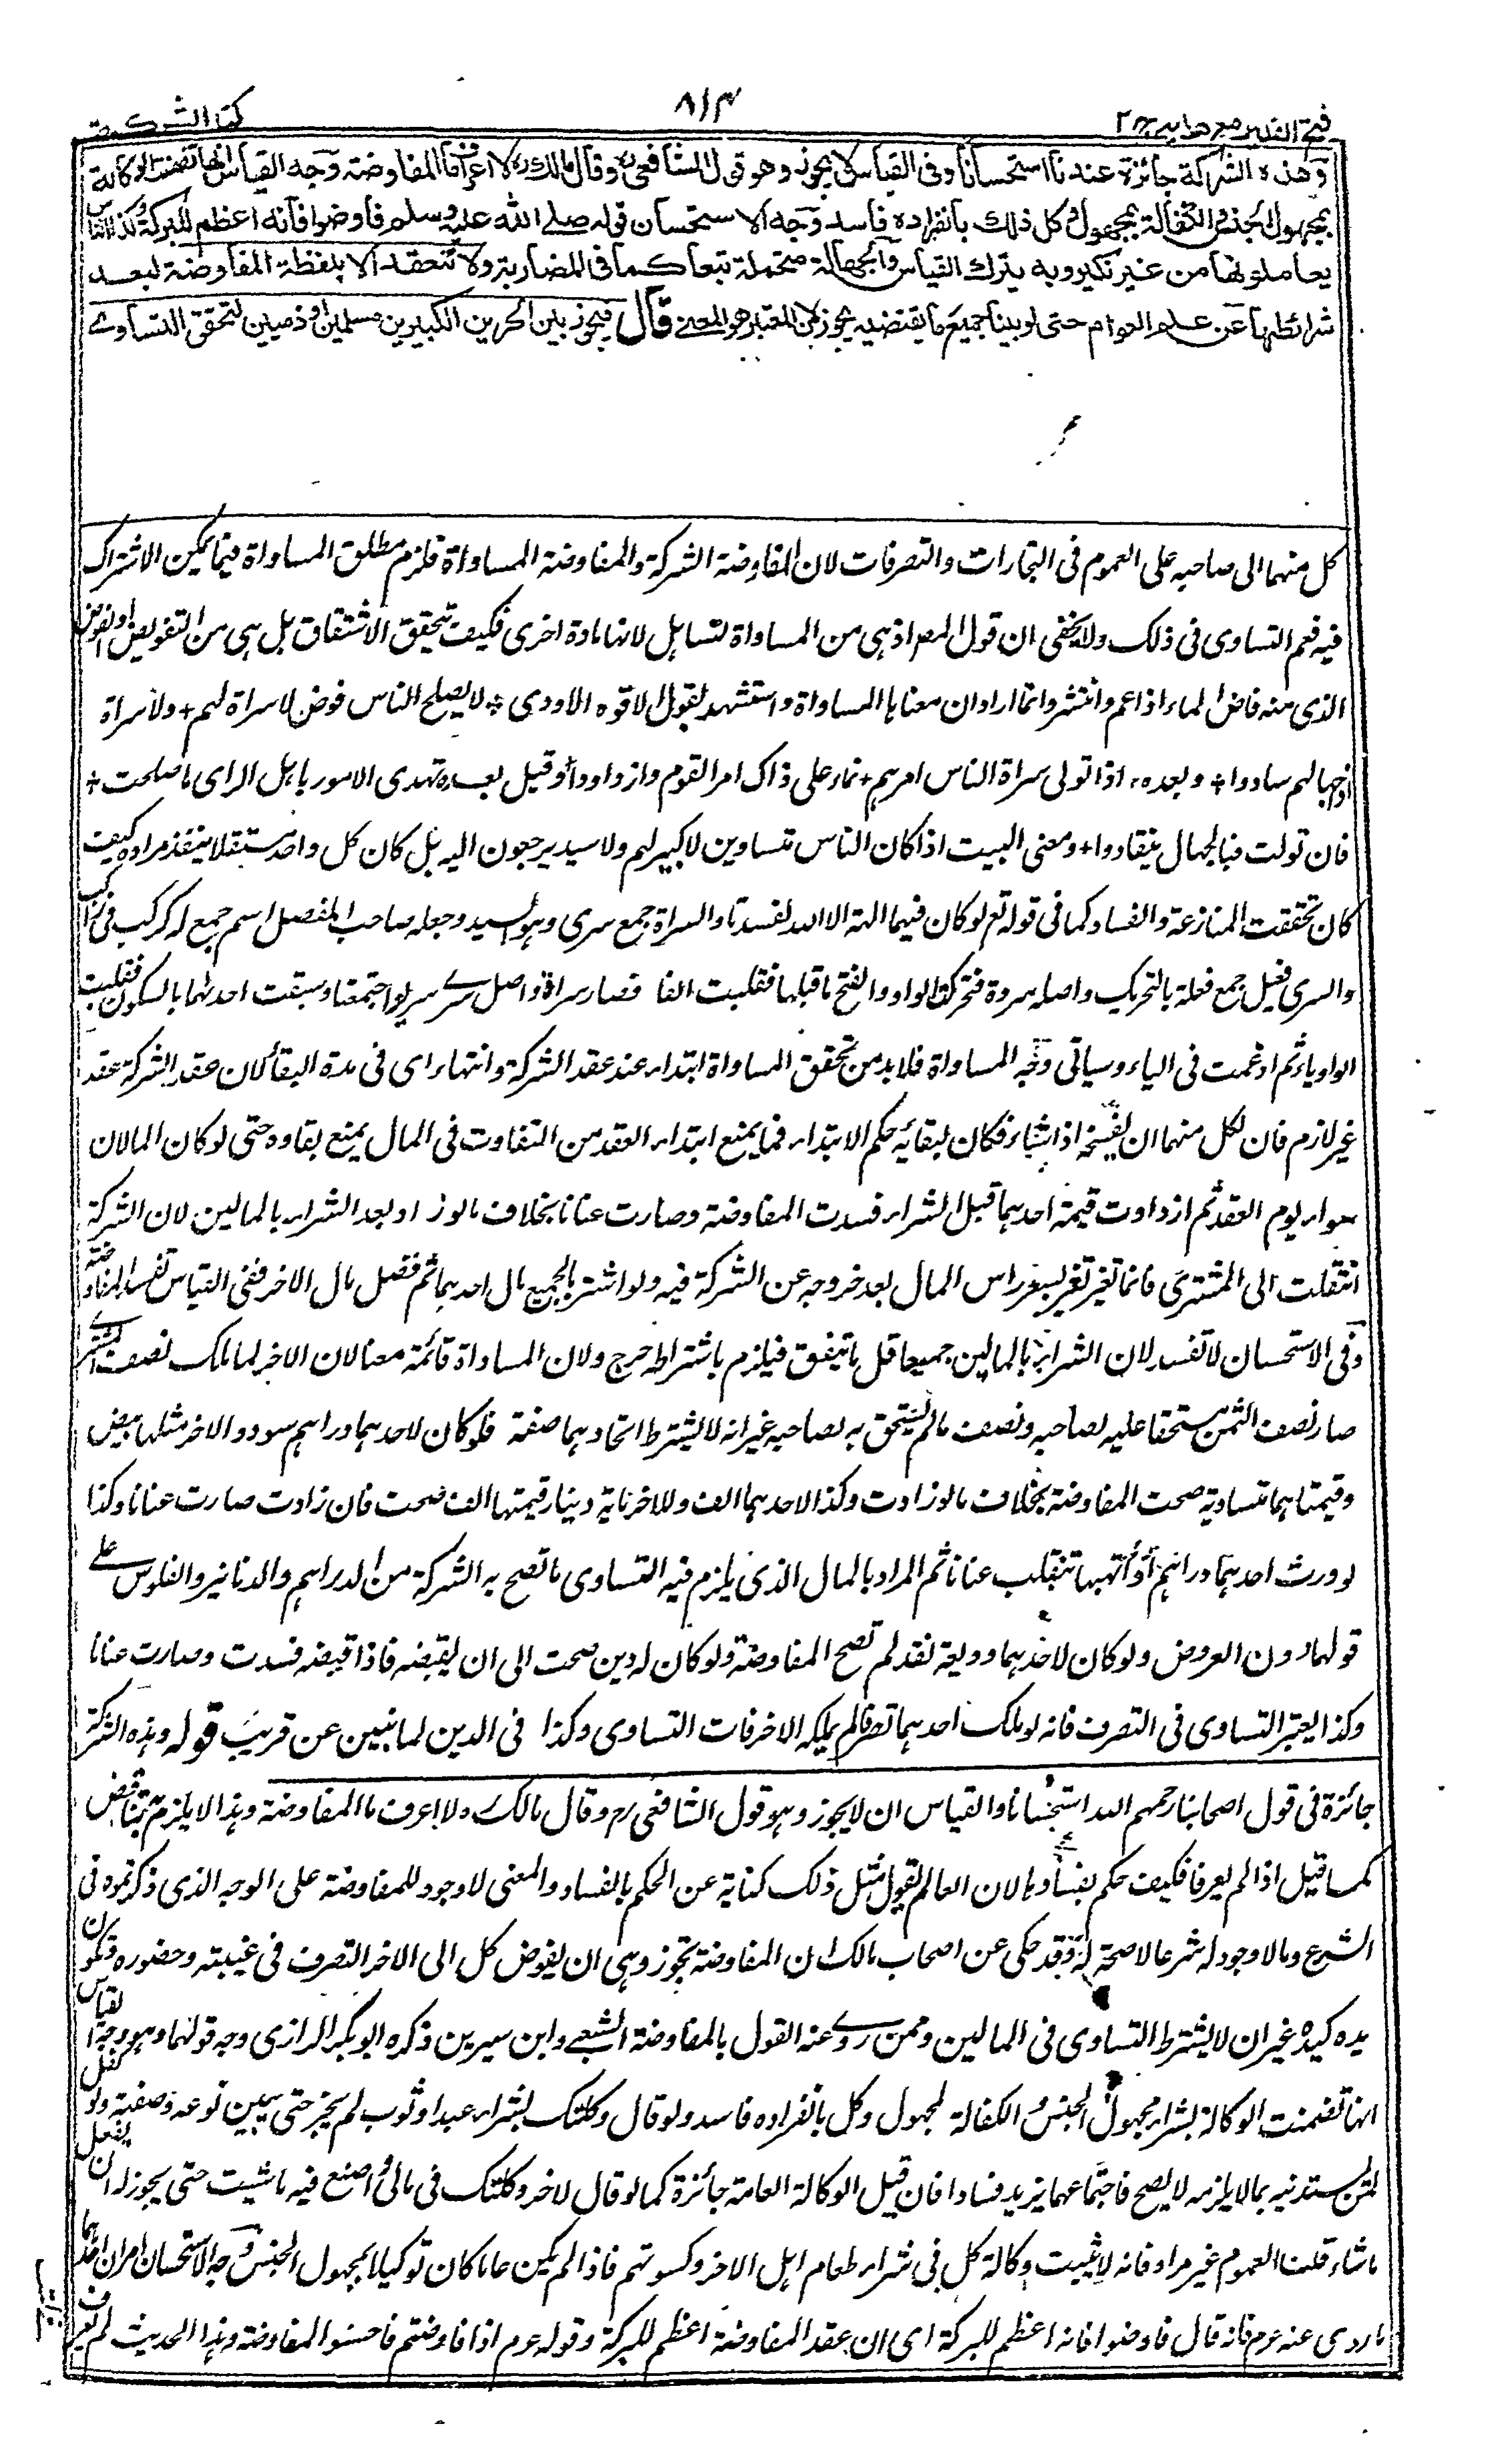 فتح القدير مع هدايه ج ٢
٨١٣
كتاب الشركة
وهذه الشركة جائزة عندنا استحسانا وفى القياس لا يجوز وهو قول الشافعى وقال مالك لا اعرف ما المفاوضة وجه القياس انها تضمنت الوكالة
بمجهول الجنس والكفالة بمجهول وكل ذلك بانفراده فاسد وجه الاستحسان قوله صلى الله عليه وسلم فاوضوا فانه اعظم للبركة وكذا الناس
يعاملونها من غير نكير وبه يترك القياس والجهالة متحملة تبعا كما فى المضاربة ولا تنعقد الا بلفظة المفاوضة لبعد
شرائطها عن علم العوام حتى لو بينا جميع ما يقتضيه يجوز لان المعتبر هو المعنى قال فيجوز بين الحرين الكبيرين مسلمين او ذميين لتحقق التساوى
كل منهما الى صاحبه على العموم فى التجارات والتصرفات لان المفاوضة الشركة والمفاوضة المساواة فلزم مطلق المساواة فيما يمكن الاشتراك
فيه فعم التساوى فى ذلك ولا يخفى ان قول المص اذ هى من المساواة تساهل لانها مادة اخرى فكيف تحقق الاشتقاق بل هى من التفويض او الفوض
الذى منه فاض الماء اذا عم وانتشر وانما اراد ان معناها المساواة واستشهد بقول الافوه الاودى ÷ لا يصلح الناس فوضى لا سراة لهم + ولا سراة
اذا جهالهم سادوا + وبعده ، اذا تولى سراة الناس امرهم + نما على ذاك امر القوم وازدادوا وقيل بعده تهدى الامور باهل الراى ما صلحت +
فان تولت فبالجهال ينقادوا + ومعنى البيت اذا كان الناس متساوين لا كبير لهم ولا سيد يرجعون اليه بل كان كل واحد مستقلا ينفذ مراده كيف
كان تحققت المنازعة والفساد كما فى قوله تع لو كان فيهما الهة الا الله لفسدتا والسراة جمع سرى وهو السيد وجعله صاحب المفصل اسم جمع له كركب فى راكب
والسرى فعيل جمع فعلة بالتحريك واصله سروة فتحركت الواو وانفتح ما قبلها فقلبت الفا فصار سراة واصل سرى سريو اجتمعتا وسبقت احدهما بالسكون فقلبت
الواو ياء ثم ادغمت فى الياء وسياتى وجه المساواة فلا بد من تحقق المساواة ابتداء عند عقد الشركة وانتهاء اى فى مدة البقاء لان عقد الشركة عقد
غير لازم فان لكل منهما ان يفسخه اذا شاء فكان لبقائه حكم الابتداء فما يمنع ابتداء العقد من التفاوت فى المال يمنع بقاوه حتى لو كان المالان
سواء يوم العقد ثم ازدادت قيمة احدهما قبل الشراء فسدت المفاوضة وصارت عنانا بخلاف ما لو زاد بعد الشراء بالمالين لان الشركة
انتقلت الى المشترى فانما تغير سعر راس المال بعد خروجه عن الشركة فيه ولو اشتريا بجميع مال احدهما ثم فضل مال الاخر ففى القياس تفسد المفاوضة
وفى الاستحسان لا تفسد لان الشراء بالمالين جميعا قل ما يتفق فيلزم باشتراطه حرج ولان المساواة قائمة معنا لان الاخر لما ملك نصف المشترى
صار نصف الثمن مستحقا عليه لصاحبه ونصف مالم يستحق به لصاحبه غير انه لا يشترط اتحادهما صفة فلو كان لاحدهما دراهم سود والاخر مثلها بيض
وقيمتاهما متساوية صحت المفاوضة بخلاف ما لو زادت وكذا لاحدهما الف وللاخر ماية دينار قيمتها الف صحت فان زادت صارت عنانا وكذا
لو ورث احدهما دراهم او اتهبها تنقلب عنانا ثم المراد بالمال الذى يلزم فيه التساوى ما تصح به الشركة من الدراهم والدنانير والفلوس على
قولهما دون العروض ولو كان لاحدهما وديعة نقد لم تصح المفاوضة ولو كان له دين صحت الى ان يقبضه فاذا قبضه فسدت وصارت عنانا
وكذا يعتبر التساوى فى التصرف فانه لو ملك احدهما تصرفا لم يملكه الاخر فات التساوى وكذا فى الدين لما نبين عن قريب قوله وهذه الشركة
جائزة فى قول اصحابنا رحمهم الله استحسانا والقياس ان لا يجوز وهو قول الشافعى رح وقال مالك ره لا اعرف ما المفاوضة وهذا لا يلزمه تناقض
كما قيل اذا لم يعرفها فكيف حكم بفسادها لان العالم يقول مثل ذلك كناية عن الحكم بالفساد والمعنى لا وجود للمفاوضة على الوجه الذى ذكرتموه فى
الشرع وما لا وجود له شرعا لا صحة له وقد حكى عن اصحاب مالك ان المفاوضة تجوز وهى ان يفوض كل الى الاخر التصرف فى غيبته وحضوره فتكون
يده كيده غير ان لا يشترط التساوى فى المالين وممن روى عنه القول بالمفاوضة الشعبى وابن سيرين ذكره ابو بكر الرازى وجه قولهما وهو وجه القياس
انها تضمنت الوكالة بشراء مجهول الجنس والكفالة لمجهول وكل بانفراده فاسد ولو قال وكلتك بشراء عبد او ثوب لم يجز حتى يبين نوعه وصفته ولو كفل
لمن يستدينه بما لا يلزمه لا يصح فاجتماعهما يزيد فسادا فان قيل الوكالة العامة جائزة كما لو قال لاخر وكلتك فى مالى واصنع فيه ما شئت حتى يجوز له ان يفعل
ما شاء قلنا العموم غير مراد فانه لا يثبت وكالة كل فى شراء طعام اهل الاخر وكسوتهم فاذا لم يكن عاما كان توكيلا بمجهول الجنس وجه الاستحسان امران احدهما
ما روى عنه عرم فانه قال فاوضوا فانه اعظم للبركة اى ان عقد المفاوضة اعظم للبركة وقوله عرم اذا فاوضتم فاحسنوا المفاوضة وهذا الحديث لم يعرف